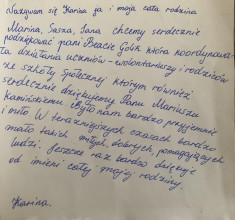 Nazywam się Karina ja i moja cała rodzina
Marina, Sasza, Jana chcemy serdecznie
podziękować pani Beacie Golik która koordynowała
ta działania uczniów-wolontariuszy i rodziców
ze szkoły Społecznej którym również
serdecznie dziękujemy Panu Mariuszu
Kamińskiemu. Było nam bardzo przyjemnie
i miło. W teraźniejszych czasach bardzo
mało takich miłych, dobrych, pomagających
ludzi. Jeszcze raz bardzo dziękuję
od imieni całej mojej rodziny.
Karina.